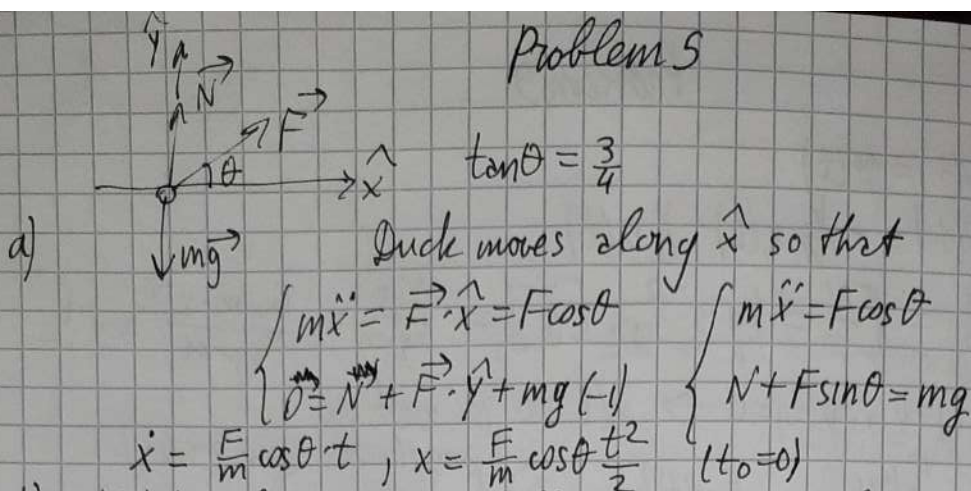 Problem 5
ŷ
N⃗
F⃗
θ
x̂
tanθ = 3/4
a)
mg⃗
Duck moves along x̂ so that
{ mẍ = F⃗·x̂ = Fcosθ
{ mẍ = Fcosθ
{ 0 = N + F⃗·ŷ + mg(-1)
{ N + Fsinθ = mg
ẋ = F/m cosθ·t , x = F/m cosθ t²/2 (t₀=0)